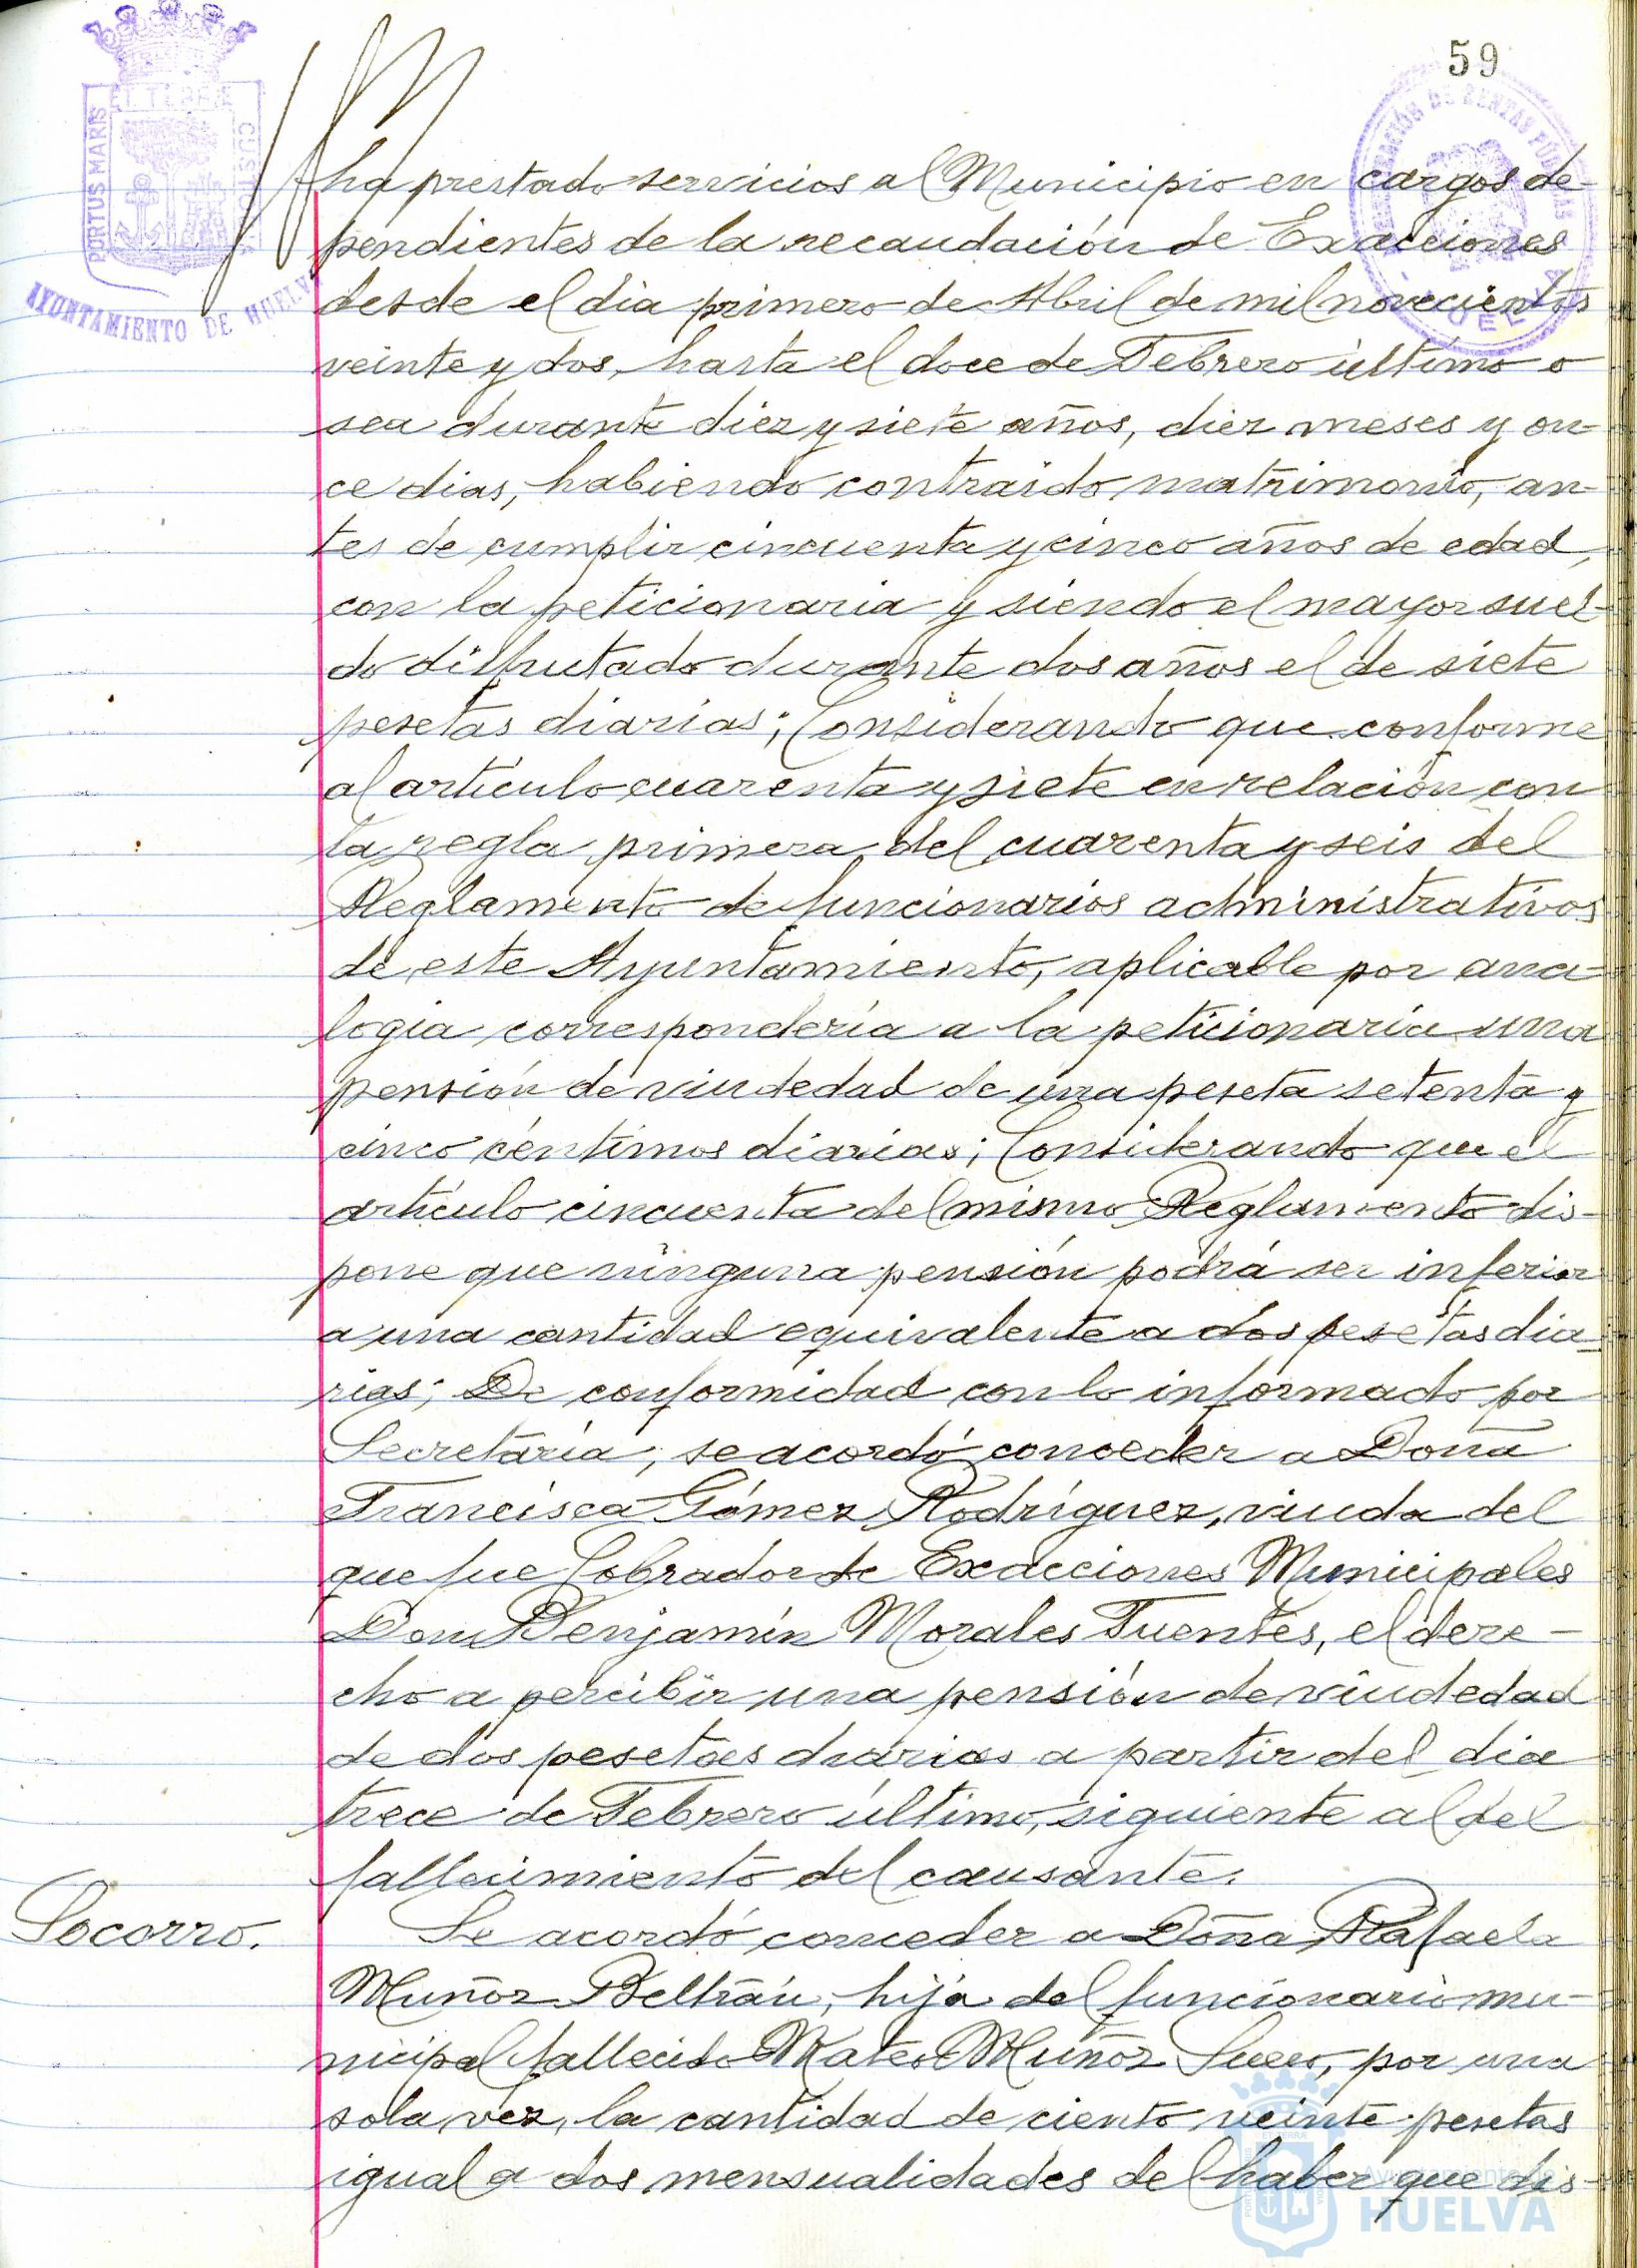 59
PORTUS MARIS
ET TERRÆ
CUSTODIA
AYUNTAMIENTO DE HUELVA
ADMINISTRACIÓN DE RENTAS PÚBLICAS
HUELVA
ha prestado servicios al Municipio en cargos de-
pendientes de la recaudación de Exacciones
desde el dia primero de Abril de mil novecientos
veinte y dos, hasta el doce de Febrero último o
sea durante diez y siete años, diez meses y on-
ce dias, habiendo contraido matrimonio, an-
tes de cumplir cincuenta y cinco años de edad,
con la peticionaria y siendo el mayor suel-
do disfrutado durante dos años el de siete
pesetas diarias; Considerando que conforme
al artículo cuarenta y siete en relación con
la regla primera del cuarenta y seis del
Reglamento de funcionarios administrativos
de este Ayuntamiento, aplicable por ana-
logia correspondería a la peticionaria una
pensión de viudedad de una peseta setenta y
cinco céntimos diarias; Considerando que el
artículo cincuenta del mismo Reglamento dis-
pone que ninguna pensión podrá ser inferior
a una cantidad equivalente a dos pesetas dia-
rias; De conformidad con lo informado por
Secretaría, se acordó conceder a Doña
Francisca Gómez Rodríguez, viuda del
que fue Cobrador de Exacciones Municipales
Don Benjamín Morales Fuentes, el dere-
cho a percibir una pensión de viudedad
de dos pesetas diarias a partir del dia
trece de Febrero último, siguiente al del
fallecimiento del causante.
Socorro.
Se acordó conceder a Doña Rafaela
Muñoz Beltrán, hija del funcionario mu-
nicipal fallecido Mateo Muñoz, por una
sola vez, la cantidad de ciento veinte pesetas
igual a dos mensualidades del haber que dis-
Ayuntamiento de
HUELVA